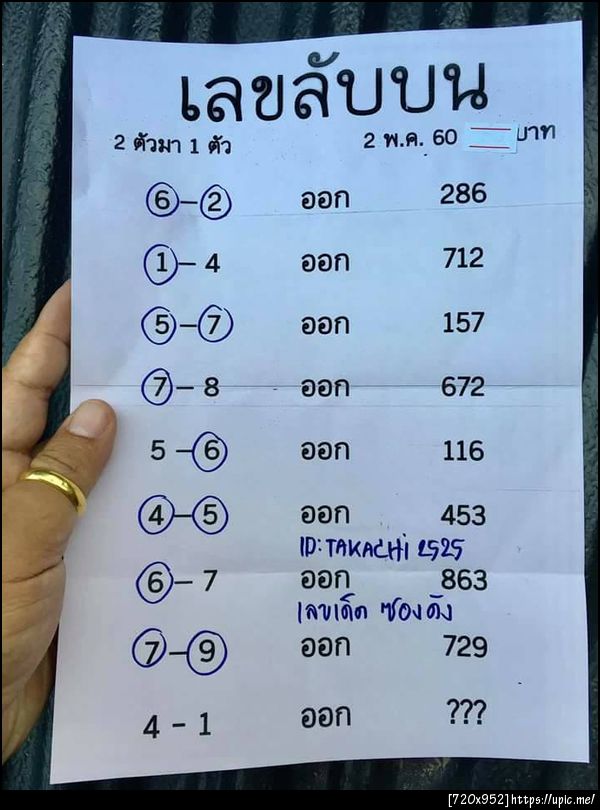 เลขลับบน
2 ตัวมา 1 ตัว 2 พ.ค. 60 บาท
6-2 ออก 286
1-4 ออก 712
5-7 ออก 157
7-8 ออก 672
5-6 ออก 116
4-5 ออก 453
ID: TAKACHi 2525
6-7 ออก 863
เลขเด็ด ซองดัง
7-9 ออก 729
4-1 ออก ???
[720x952]https://upic.me/